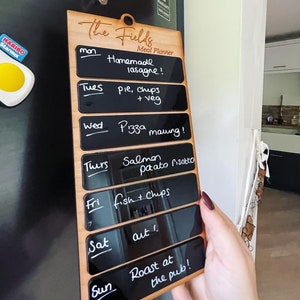 The Fields
Meal Planner
mon
Homemade
lasagne!
Tues
pie, chips
+ veg
Wed
Pizza
Thurs
Salmon
Fri
fish + chips
Sat
out!
Sun
Roast at
the pub!